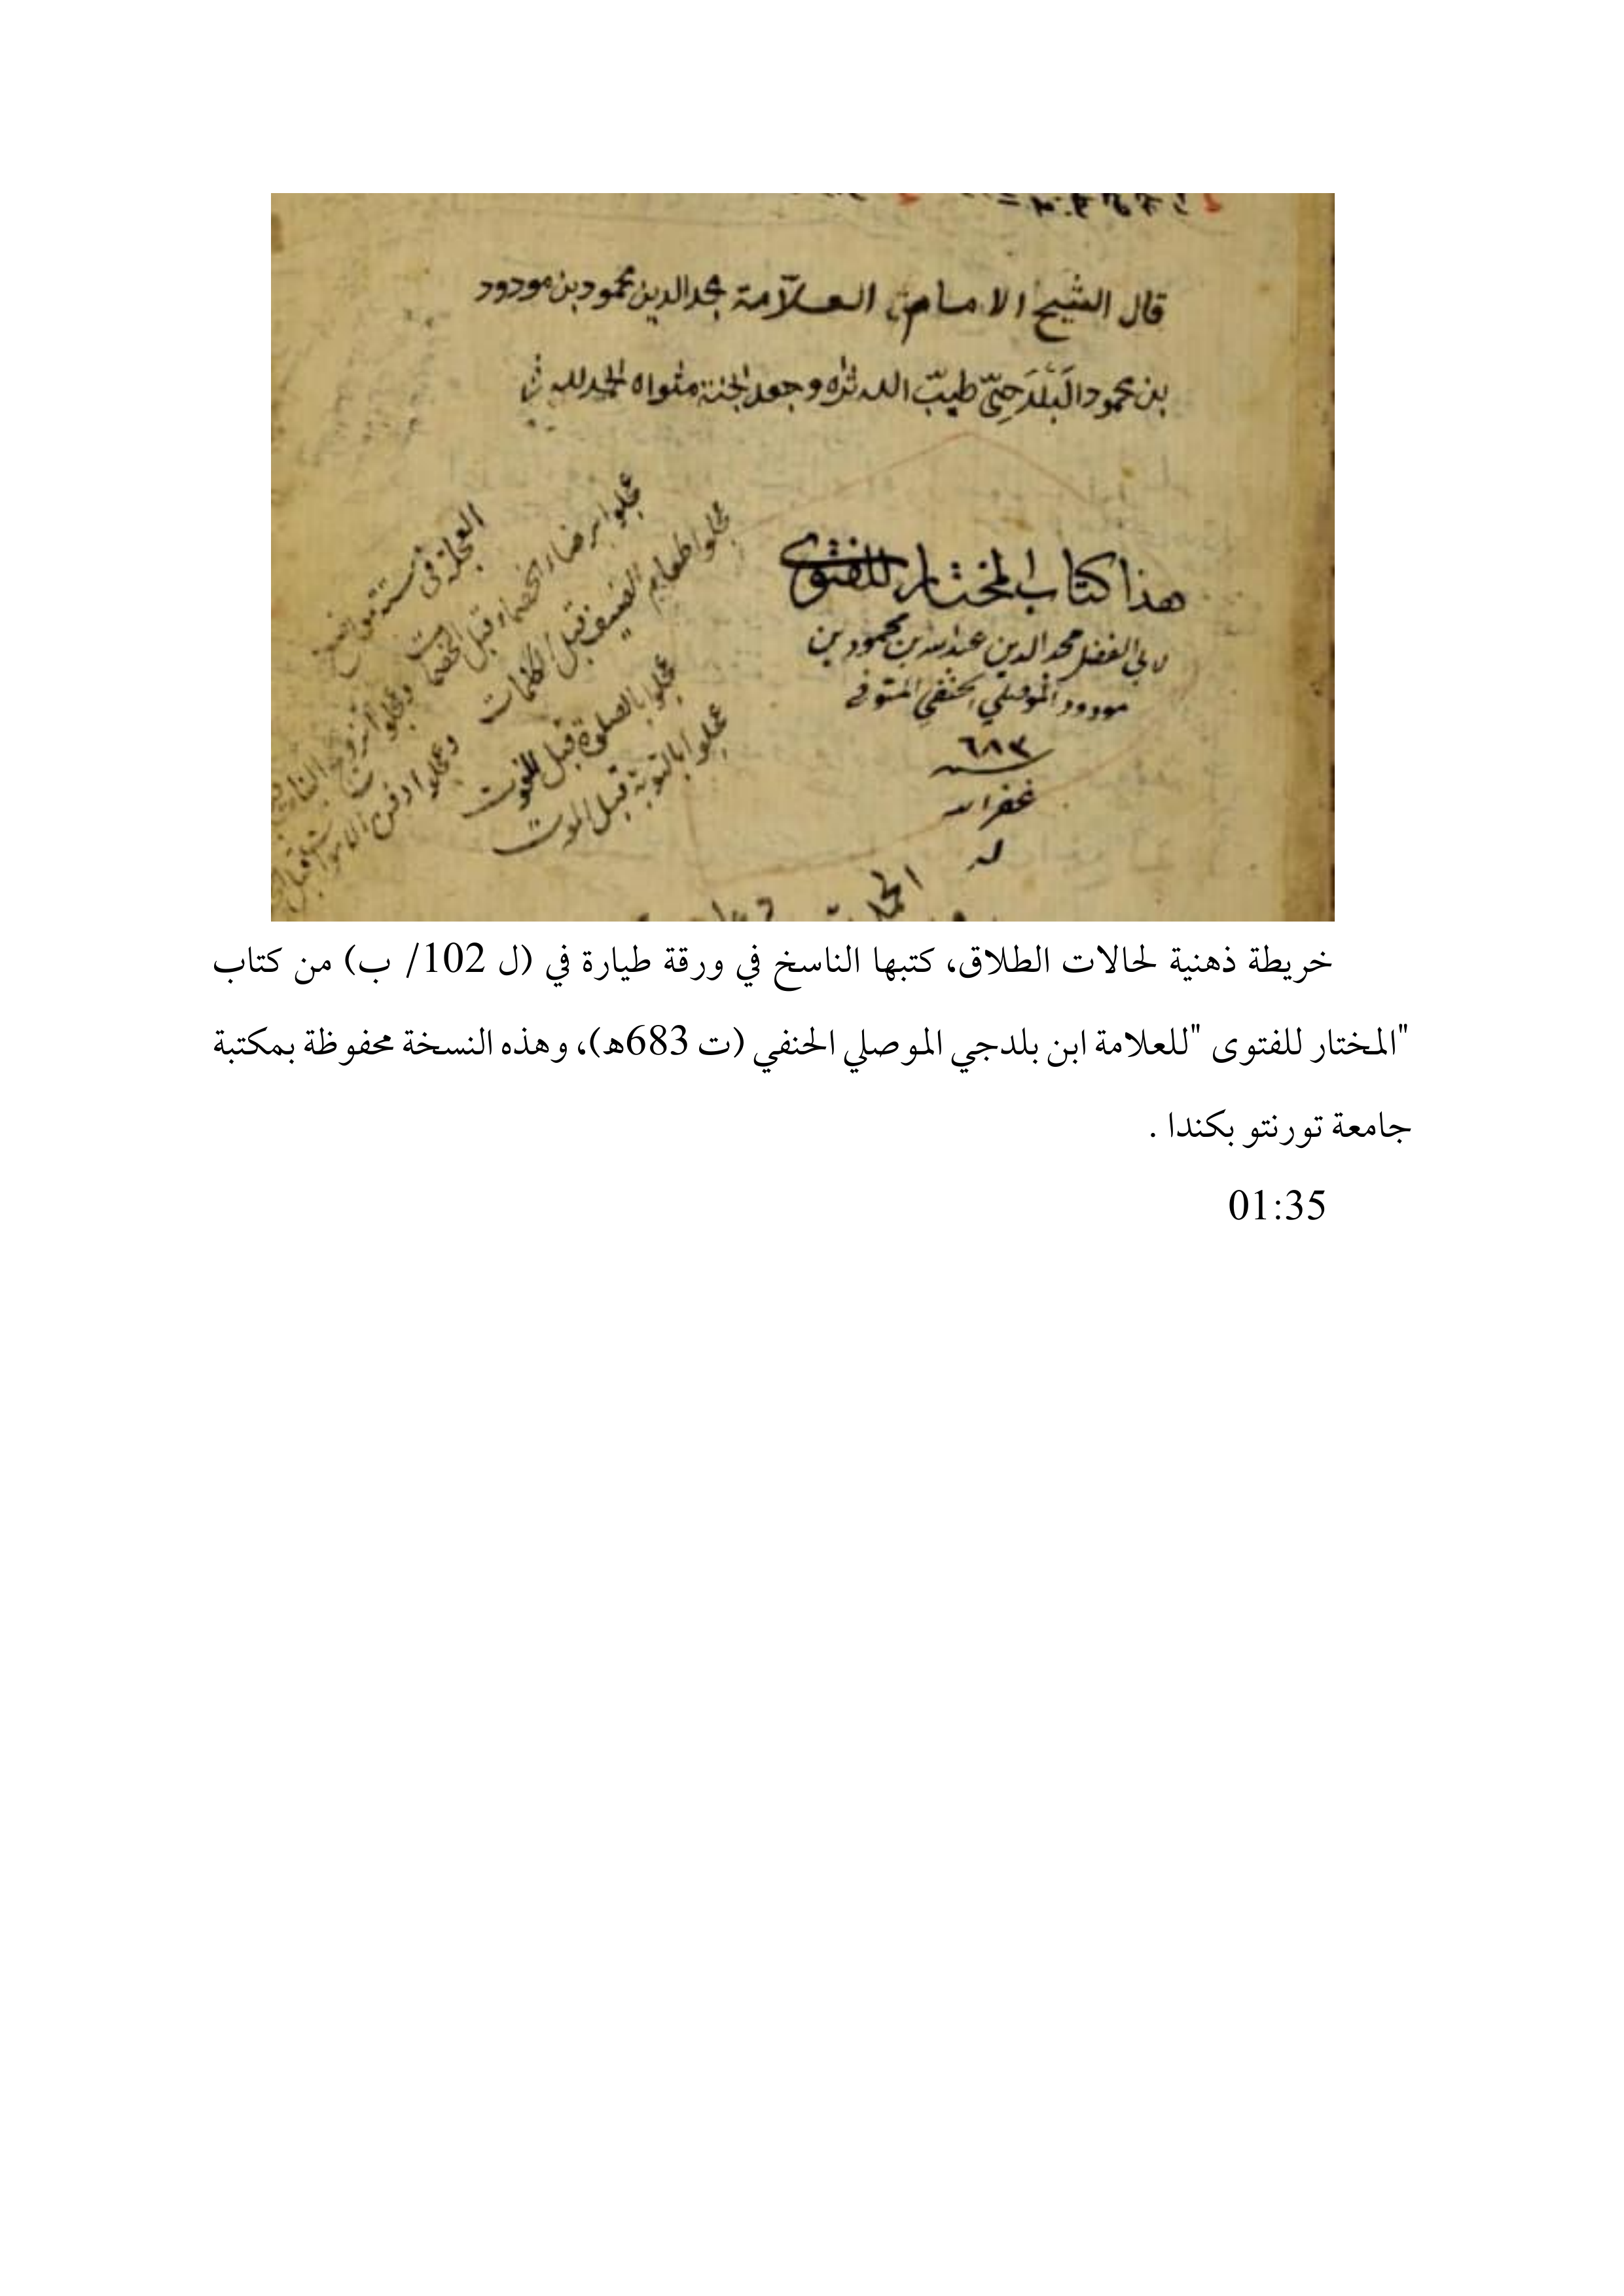 قال الشيخ الامام العلّامة مجد الدين محمود بن مودود
بن محمود البَلْدَجِىّ طيّب الله ثراه وجعل الجنة مثواه الحمد لله
هذا كتاب المختار للفتوى
لابي الفضل مجد الدين عبد الله بن محمود بن
مودود الموصلي الحنفي المتوفى
٦٨٣
غفر الله
له
العجلة فى ستة مواضع
عجلوا برضاء الخصماء قبل
عجلوا اطعام الضيف قبل
عجلوا بالصلوة قبل الفوت
عجلوا بالتوبة قبل الموت
خريطة ذهنية لحالات الطلاق، كتبها الناسخ في ورقة طيارة في (ل 102/ ب) من كتاب
"المختار للفتوى "للعلامة ابن بلدجي الموصلي الحنفي (ت 683هـ)، وهذه النسخة محفوظة بمكتبة
جامعة تورنتو بكندا .
01:35